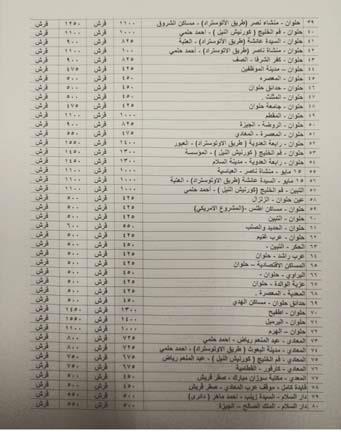 ٣٩ حلوان - منشاه نصر (طريق الاوتوستراد) - مساكن الشروق ١١٠٠ قرش ١٢٥٠ قرش
٤٠ حلوان - فم الخليج (كورنيش النيل) - احمد حلمي ١٠٠٠ قرش ١١٠٠ قرش
٤١ حلوان - السيدة عائشة (طريق الاوتوستراد) - العتبة ٨٢٥ قرش ٩٠٠ قرش
٤٢ حلوان - منشاه ناصر (طريق الاوتوستراد) - احمد حلمي قرش ١١٠٠ قرش
٤٣ حلوان - كفر الشرفا - الصف ٨٢٥ قرش ٩٠٠ قرش
٤٤ حلوان - مدينة الموظفين ٤٢٥ قرش ٤٧٥ قرش
٤٥ حلوان - المعصره ٤٥٠ قرش ٥٠٠ قرش
٤٦ حلوان - حدائق حلوان ٤٥٠ قرش ٥٠٠ قرش
٤٧ حلوان - المثلث ٤٥٠ قرش ٥٠٠ قرش
٤٨ حلوان - جامعة حلوان ٤٢٥ قرش ٤٧٥ قرش
٤٩ حلوان - المقطم ١٠٠٠ قرش ١١٠٠ قرش
٥٠ حلوان - الروضة - الجيزة ٨٢٥ قرش ٩٠٠ قرش
٥١ حلوان - المعصرة - المعادي ٤٧٥ قرش ٥٥٠ قرش
٥٢ حلوان - رابعة العدوية (طريق الاوتوستراد) - العبور ١٤٠٠ قرش ١٥٥٠ قرش
٥٣ حلوان - فم الخليج (كورنيش النيل) - المؤسسة ١٣٠٠ قرش ١٤٥٠ قرش
٥٤ حلوان - رابعة العدوية - مدينة السلام ١٣٠٠ قرش ١٤٥٠ قرش
٥٥ ١٥ مايو - منشاة ناصر - العباسية ١٠٠٠ قرش ١١٠٠ قرش
٥٦ ١٥ مايو - السيدة عائشة (طريق الاوتوستراد) - العتبة ١٠٠٠ قرش ١١٠٠ قرش
٥٧ التبين - فم الخليج (كورنيش النيل) - احمد حلمي ١٠٠٠ قرش ١١٠٠ قرش
٥٨ عين حلوان - الزلزال ٤٢٥ قرش ٥٠٠ قرش
٥٩ حلوان - مساكن اطلس - (المشروع الامريكي) ٤٢٥ قرش ٥٠٠ قرش
٦٠ حلوان - التبين ٤٢٥ قرش ٥٠٠ قرش
٦١ حلوان - الحديد والصلب ٥٥٠ قرش ٦٠٠ قرش
٦٢ حلوان - عرب غنيم ٤٢٥ قرش ٥٠٠ قرش
٦٣ الحكر - التبين ٤٢٥ قرش ٥٠٠ قرش
٦٤ عرب راشد - حلوان ٤٢٥ قرش ٥٠٠ قرش
٦٥ المساكن الاقتصادية - حلوان ٤٢٥ قرش ٥٠٠ قرش
٦٦ البراوي - حلوان ٤٥٠ قرش ٥٠٠ قرش
٦٧ عزبة الوالدة - حلوان ٤٥٠ قرش ٥٠٠ قرش
٦٨ المعدية - المعصرة ٤٥٠ قرش ٥٠٠ قرش
٦٩ حدائق حلوان - مساكن الهدي ٤٥٠ قرش ٥٠٠ قرش
٧٠ حلوان - اطفيح ١٣٠٠ قرش ١٤٥٠ قرش
٧١ حلوان - البرميل ١٤٠٠ قرش ١٥٥٠ قرش
٧٢ حلوان - الهرم ١٠٠٠ قرش ١١٠٠ قرش
٧٣ المعادي - عبد المنعم رياض - احمد حلمي ٧٢٥ قرش ٨٠٠ قرش
٧٤ المعادي - مدينة البعوث (طريق الاوتوستراد) - احمد حلمي ٧٢٥ قرش ٨٠٠ قرش
٧٥ المعادي - فم الخليج (كورنيش النيل) - عبد المنعم رياض ٦٧٥ قرش ٧٥٠ قرش
٧٦ المعادي - كارفور - القطامية ٦٧٥ قرش ٧٥٠ قرش
٧٧ المعادي - مكتبة سوزان مبارك - صقر قريش ٤٥٠ قرش ٥٠٠ قرش
٧٨ فايدة كامل - موقف عرب المعادي - صقر قريش ٤٥٠ قرش ٥٠٠ قرش
٧٩ دار السلام - السيدة زينب - احمد ماهر (دائري) قرش ٥٥٠ قرش
٨٠ دار السلام - الملك الصالح - الجيزة قرش ٥٠٠ قرش